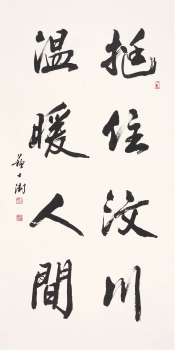 挺住汶川
温暖人間
苏士澍